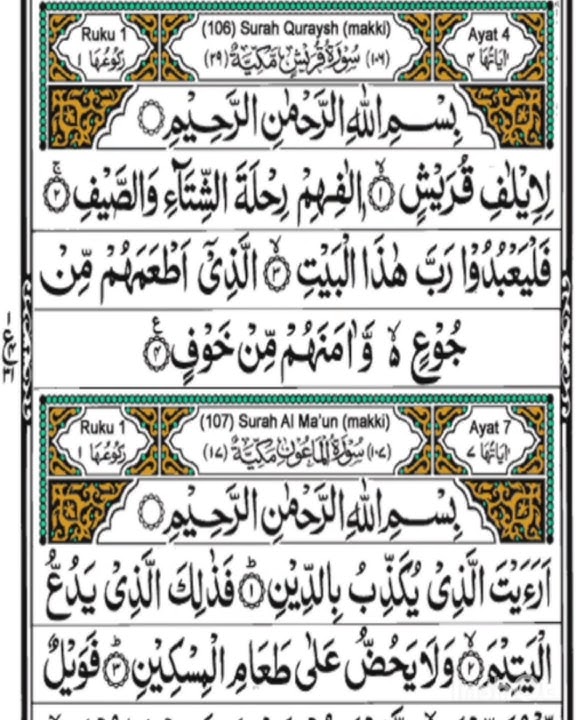 Ruku 1 (106) Surah Quraysh (makki) Ayat 4
رَكُوْعُهَا ١ (١٠٦) سُوْرَةُ قُرَيْشٍ مَّكِّيَّةٌ (٢٩) اٰيَاتُهَا ٤
بِسْمِ اللّٰهِ الرَّحْمٰنِ الرَّحِيْمِ
لِاِيْلٰفِ قُرَيْشٍ ۙ﴿١﴾ اٖلٰفِهِمْ رِحْلَةَ الشِّتَآءِ وَالصَّيْفِ ۚ﴿٢﴾
فَلْيَعْبُدُوْا رَبَّ هٰذَا الْبَيْتِ ۙ﴿٣﴾ الَّذِىْٓ اَطْعَمَهُمْ مِّنْ
جُوْعٍ ۙ وَّاٰمَنَهُمْ مِّنْ خَوْفٍ ﴿٤﴾ ع
Ruku 1 (107) Surah Al Ma'un (makki) Ayat 7
رَكُوْعُهَا ١ (١٠٧) سُوْرَةُ الْمَاعُوْنِ مَكِّيَّةٌ (١٧) اٰيَاتُهَا ٧
بِسْمِ اللّٰهِ الرَّحْمٰنِ الرَّحِيْمِ
اَرَءَيْتَ الَّذِىْ يُكَذِّبُ بِالدِّيْنِ ؕ﴿١﴾ فَذٰلِكَ الَّذِىْ يَدُعُّ
الْيَتِيْمَ ۙ﴿٢﴾ وَلَا يَحُضُّ عَلٰى طَعَامِ الْمِسْكِيْنِ ؕ﴿٣﴾ فَوَيْلٌ